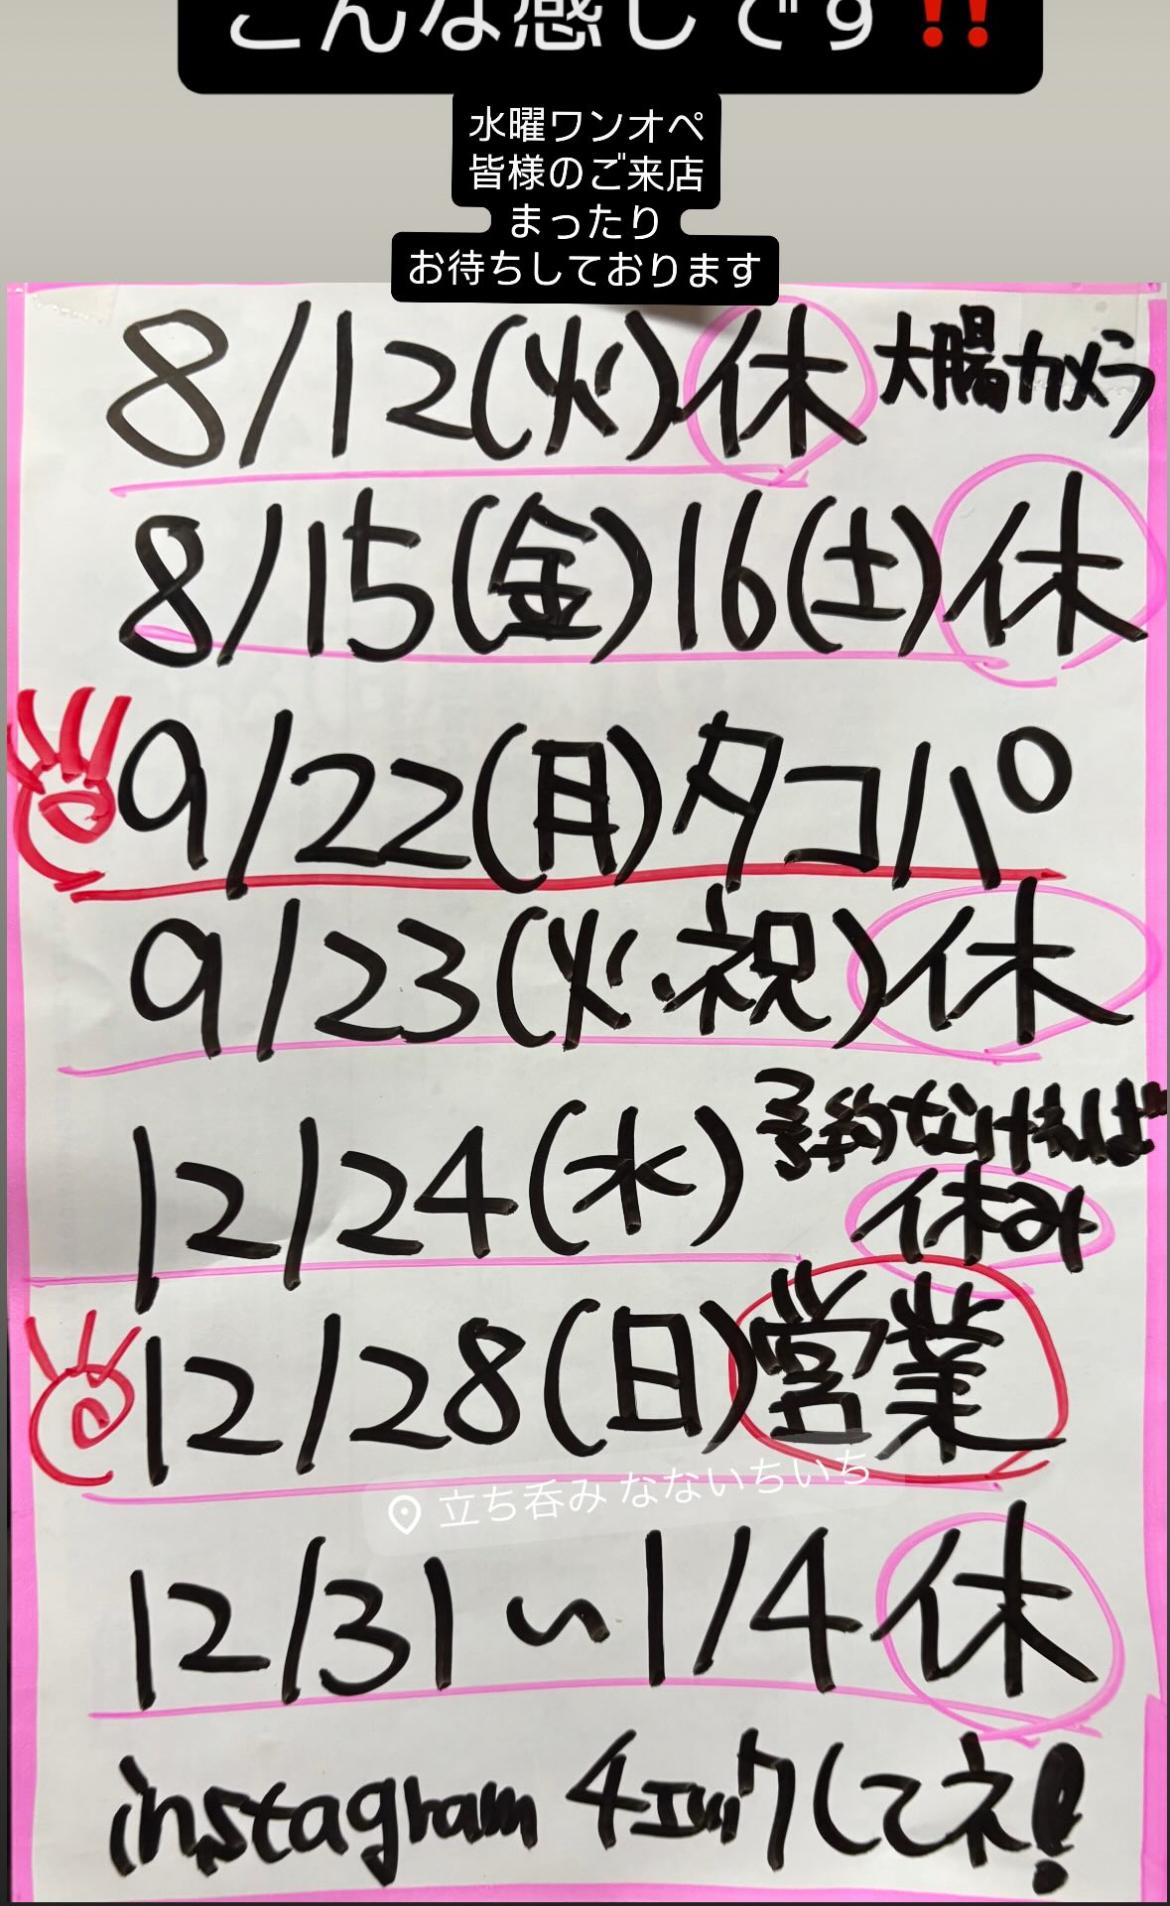 こんな感じです‼️
水曜ワンオペ
皆様のご来店
まったり
お待ちしております
8/12(火)休 大腸カメラ
8/15(金)16(土)休
9/22(月)タコパ
9/23(火・祝)休
12/24(水) 予約なければ
休み
12/28(日)営業
立ち呑み なないちいち
12/31～1/4休
instagram チェックしてネ!